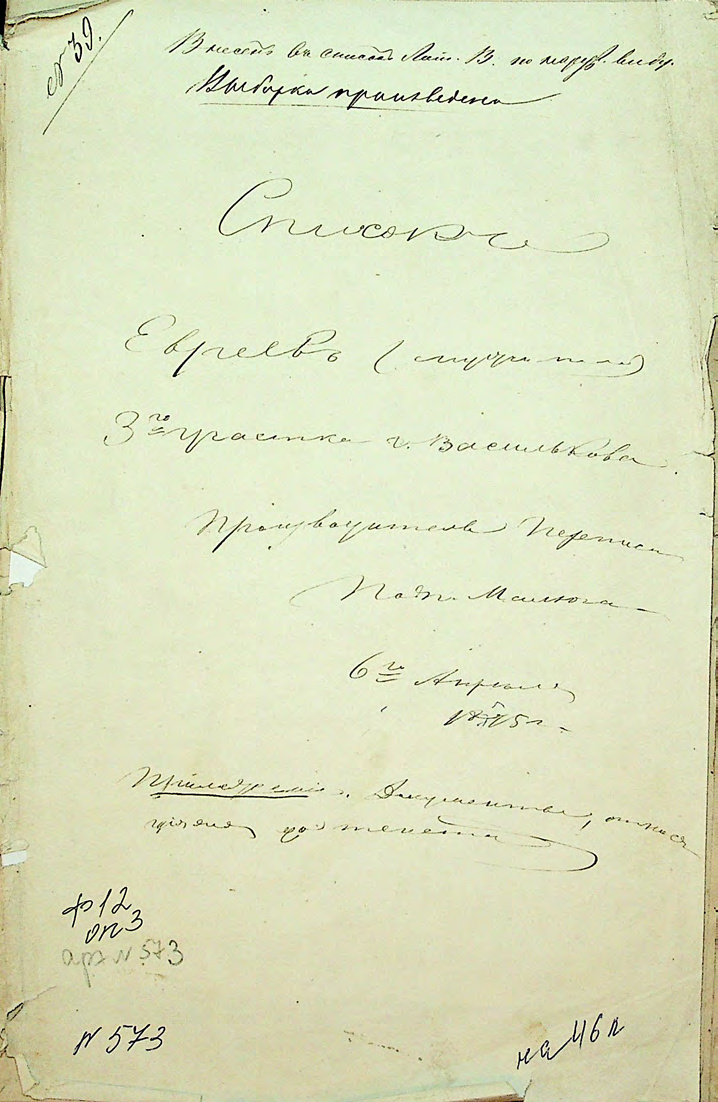 № 39.
Внесть въ списокъ Лит. В. по наруж. виду.
Выборка произведена
Списокъ
Евреевъ (мущинъ)
3го участка г. Василькова.
Производитель Переписи
Подп. Малюга
6го Апрѣля
1875 г.
Приложеніе. Документы, относя
щіеся
ф 12
оп 3
арх № 573
№ 573
на 46 л